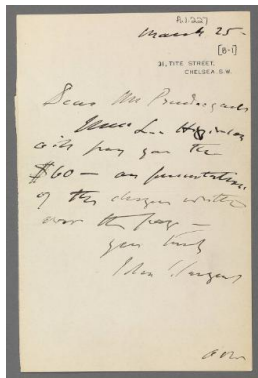 A.1.227
March 25 -
[B-1]
31, TITE STREET,
CHELSEA. S.W.
Dear Mr Prendergast
Lee Higginson
will pay you the
$60 - on presentation
of the cheque written
over the page -
yours truly
John S. Sargent